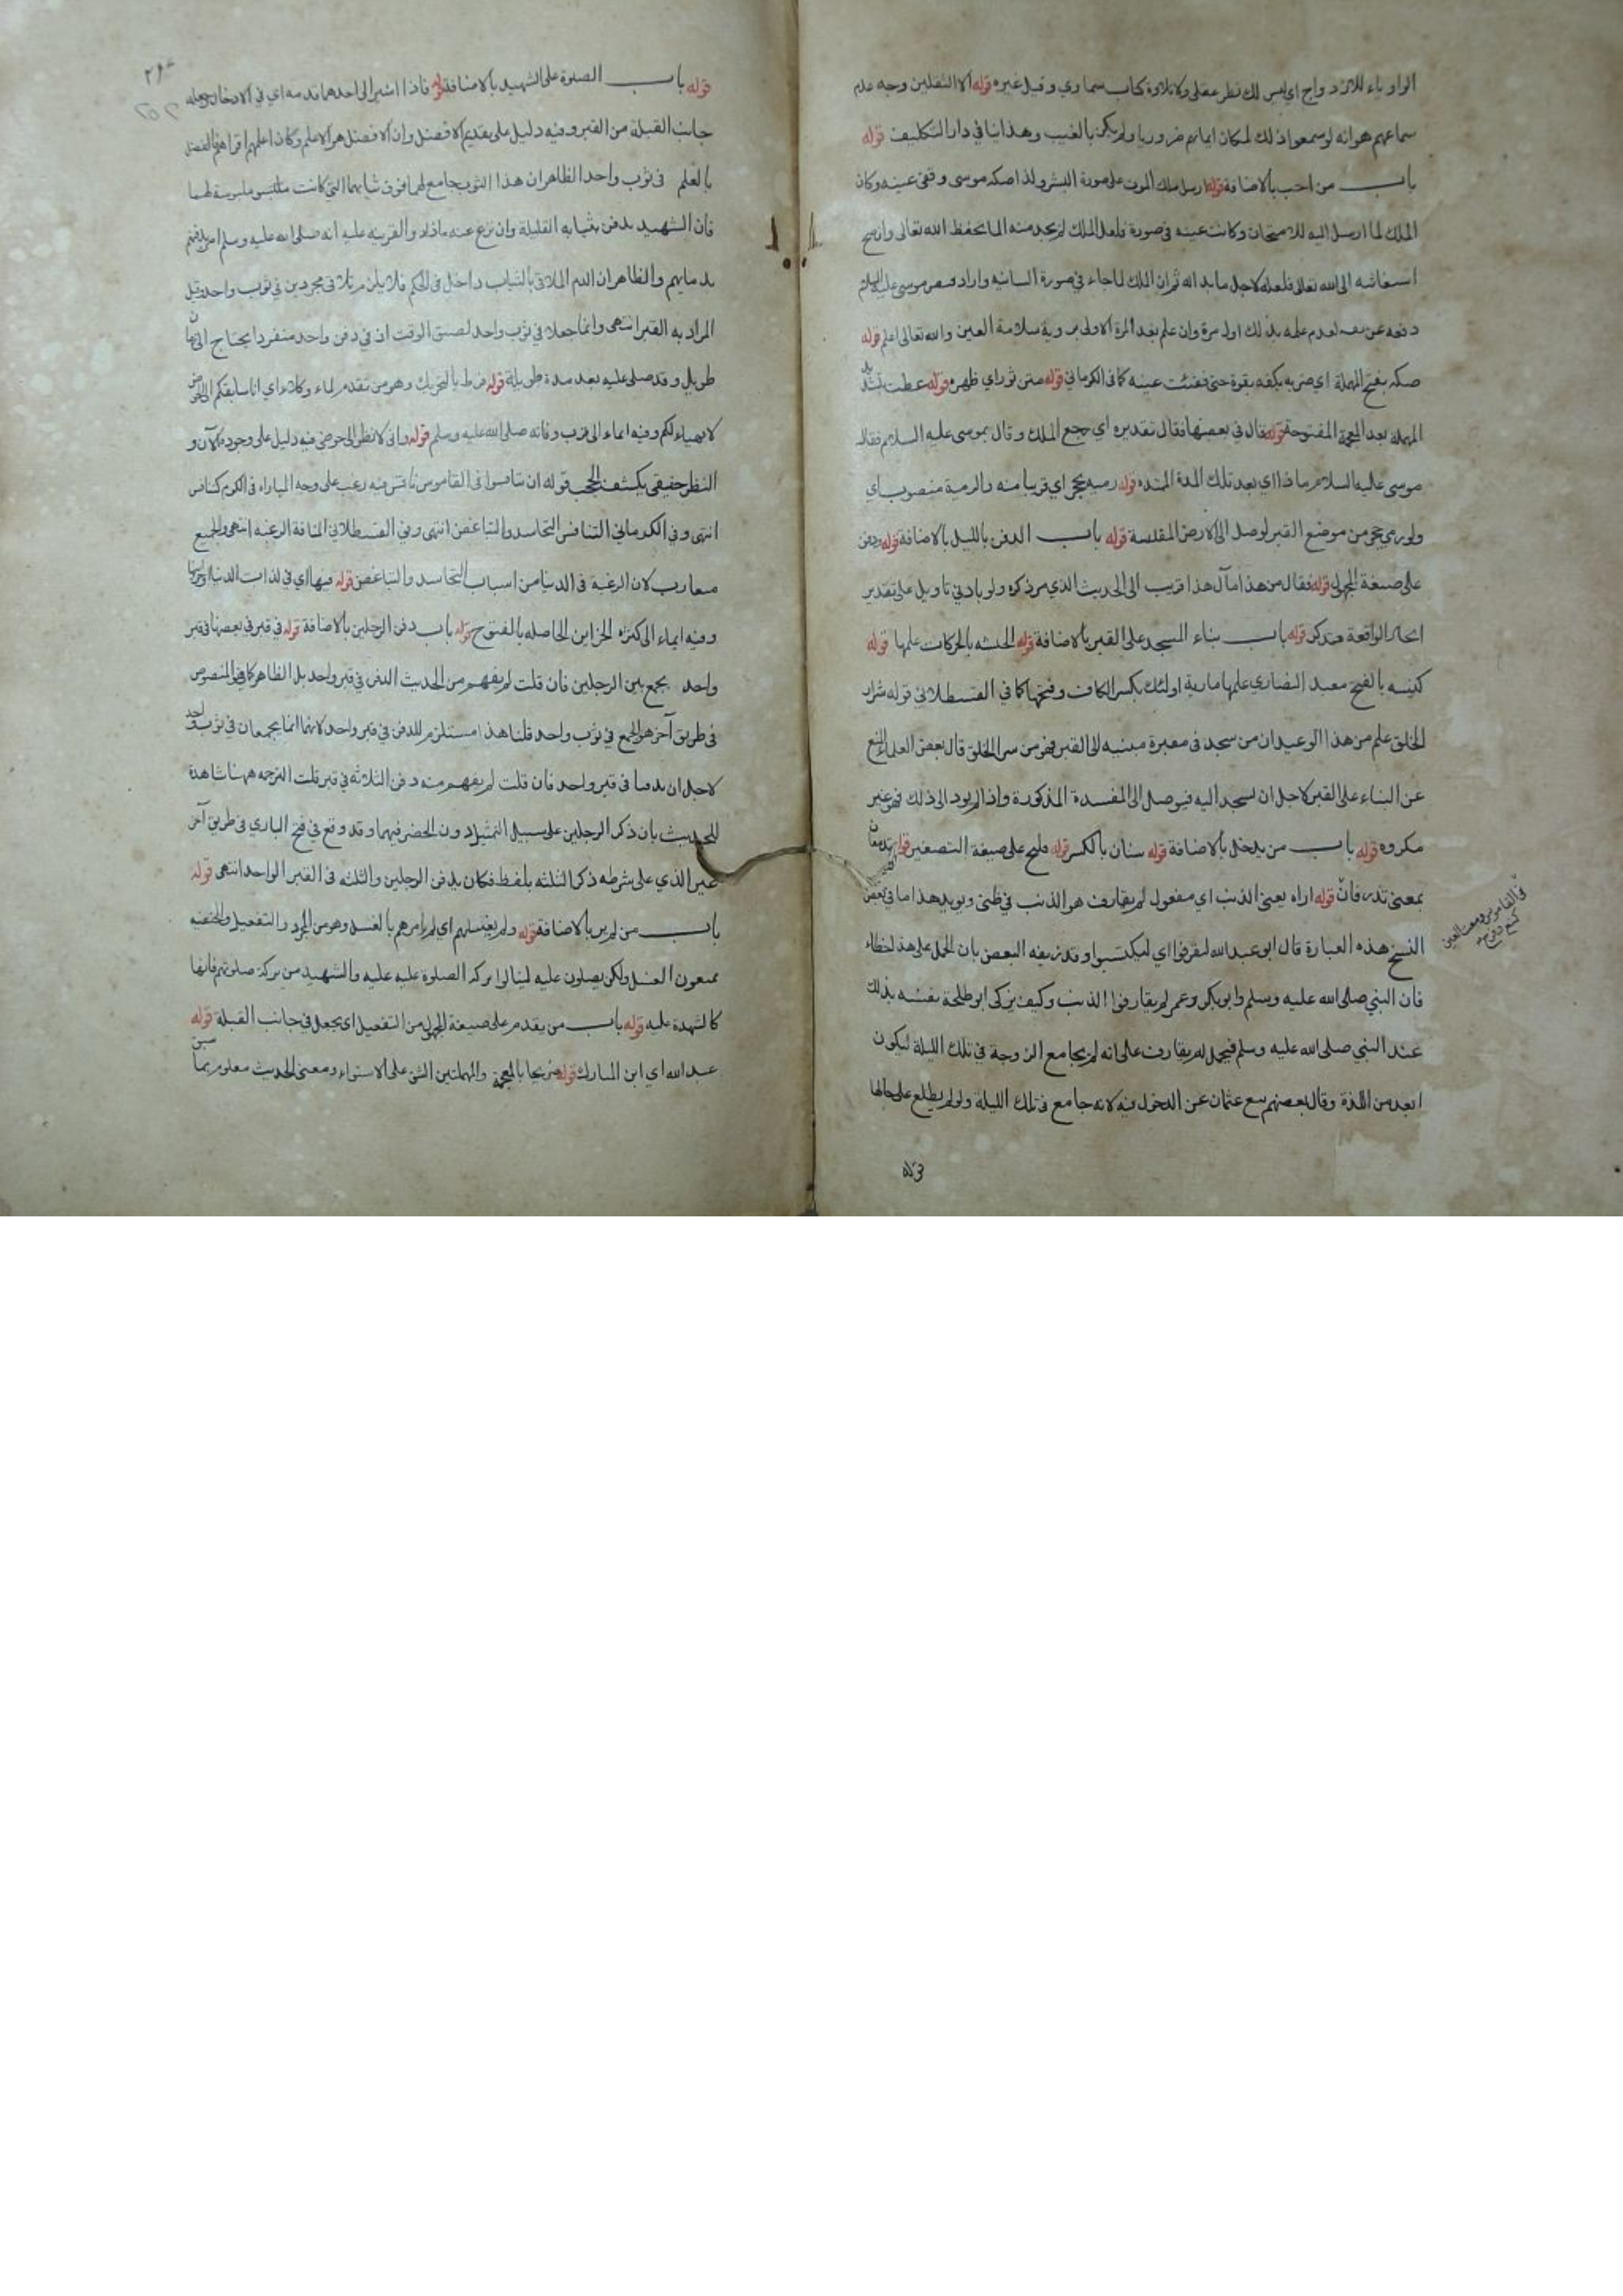 الواو ياء للازدواج اي ليس لك نظر عقلي ولا تلاوة كتاب سماوي وقيل غيره قوله الا الثقلين وجه عدم
سماعهم هو انه لو سمعوا ذلك لكان ايمانهم ضروريا ولم يكن بالغيب وهذا ينافي دار التكليف قوله
باب من احب بالاضافة قوله ارسل ملك الموت على صورة البشر ولذا صكه موسى وفقئ عينه وكان
الملك لما ارسل اليه للامتحان وكانت عينه في صورة فلعل الملك لم يجد منه الما بحفظ الله تعالى وانما صح
الى الله تعالى فلعله لاجل ما بدا له ثم ان الملك لما جاء في صورة انسانية واراد قبض موسى عليه السلام
دفعه عن نفسه لعدم علمه بذلك اول مرة وان علم بعد المرة الاولى برؤية سلامة العين والله تعالى اعلم قوله
صكه بفتح المهملة اي ضربه بكفه بقوة حتى فقئت عينه كما في الكرماني قوله متن ثور اي ظهره قوله غطت بشد
المهملة بعد المعجمة المفتوحة قوله فقال في بعضها فقال تقديره اي رجع الملك وقال بموسى عليه السلام فقال
موسى عليه السلام ماذا اي بعد تلك المدة الممتدة قوله رمية بحجر اي قريبا منه والرمية منصوب اي
ولو رمي حجر من موضع القبر لوصل الى الارض المقدسة قوله باب الدفن بالليل بالاضافة قوله ودفن
على صيغة المجهول قوله فقال من هذا مآل هذا قريب الى الحديث الذي مر ذكره ولو بادنى تاويل على تقدير
اتحاد الواقعة فتذكر قوله باب بناء المسجد على القبر بالاضافة قوله الحبشة بالحركات علمها قوله
كنيسه بالفتح معبد النصاري علمها مارية اولئك بكسر الكاف وفتحها كما في القسطلاني قوله شرار
الخلق علم من هذا الوعيد ان من سجد في مقبرة مبنيه الى القبر فهو من شر الخلق قال بعض العلماء المنع
عن البناء على القبر لاجل ان يسجد اليه فيوصل الى المفسدة المذكورة واذا لم يود الى ذلك فهو غير
مكروه قوله باب من يدخل بالاضافة قوله سنان بالكسر قوله فليح على صيغة التصغير قوله تدمعان
بمعنى تذرفان قوله اراه يعني الذنب اي مفعول لم يقارف هو الذنب في ظني ويويد هذا ما في بعض
النسخ هذه العبارة قال ابو عبدالله ليقترفوا اي ليكتسبوا وقد زيفه البعض بان الحمل على هذا خطاء
فان النبي صلى الله عليه وسلم وابو بكر وعمر لم يقارفوا الذنب وكيف يزكي ابو طلحة نفسه بذلك
عند النبي صلى الله عليه وسلم فيحمل لم يقارف على انه لم يجامع الزوجة في تلك الليلة ليكون
ابعد من اللذة وقال بعضهم منع عثمان عن الدخول فيه لانه جامع في تلك الليلة ولو لم يطلع على حالها
قوله
في القاموس دمعت العين
كمنع وفرح
قوله باب الصلوة على الشهيد بالاضافة قوله فاذا اشير الى احدهما قدمه اي في الادخال وجعله
جانب القبلة من القبر وفيه دليل على تقديم الافضل وان الافضل هو الاعلم وكان اعلمهم اقراهم فالفضل
بالعلم في ثوب واحد الظاهر ان هذا الثوب جامع لهما فوق ثيابهما التي كانت ملبوسة لهما
فان الشهيد يدفن بثيابه القليلة وان نزع عنه ما زاد والقرينة عليه انه صلى الله عليه وسلم امر بدفنهم
بدمايهم والظاهر ان الدم الملاقي بالثياب داخل في الحكم فلا يلزم تلاقي مجردين في ثوب واحد وقيل
المراد به القبر انتهى وانما جعلا في ثوب واحد لضيق الوقت اذ في دفن واحد منفردا يحتاج الى زمان
طويل وقد صلى عليه بعد مدة طويلة قوله فرط بالتحريك وهو من تقدم لماء وكلاء اي انا سابقكم الى الحوض
لاهيياء لكم وفيه ايماء الى قرب وفاته صلى الله عليه وسلم قوله واني لانظر الى حوضي فيه دليل على وجوده الآن و
النظر حقيقي بكشف الحجب قوله ان تنافسوا في القاموس نافس فيه رغب على وجه المباراه في الكرم كتنافس
انتهى وفي الكرماني التنافس التحاسد والتباغض انتهى وفي القسطلاني المنافة الرغبه انتهى والجميع
متقارب لان الرغبة في الدنيا من اسباب التحاسد والتباغض قوله فيها اي في لذات الدنيا
وفيه ايماء الى كثرة الخزاين الحاصله بالفتوح قوله باب دفن الرجلين بالاضافة قوله في قبر في بعضها في قبر
واحد يجمع بين الرجلين فان قلت لم يفهم من الحديث الدفن في قبر واحد بل الظاهر كما هو المنصوص
في طريق آخر هو الجمع في ثوب واحد قلنا هذا مستلزم للدفن في قبر واحد لانهما انما يجمعان في ثوب واحد
لاجل ان يدفنا في قبر واحد فان قلت لم يفهم منه دفن الثلاثه في قبر قلت الترجمه ههنا شاهدة
للحديث بان ذكر الرجلين على سبيل التمثيل دون الحصر فيهما وقد وقع في فتح الباري في طريق آخر
غير الذي على شرطه ذكر الثلثه بلفظ فكان يدفن الرجلين والثلثه في القبر الواحد انتهى قوله
باب من لم ير بالاضافة قوله ولم يغسلهم اي لم يامرهم بالغسل وهو من المجرد والتفعيل والحنفيه
يمنعون الغسل ولكن يصلون عليه لينالوا بركه الصلوة عليه والشهيد من بركة صلوتهم فانها
كالشهدة عليه قوله باب من يقدم على صيغة المجهول من التفعيل اي يجعل في جانب القبلة قوله
عبد الله اي ابن المبارك قوله ضريحا بالمعجمة والمهملتين الشق على الاستواء ومعنى الحديث معلوم بما سبق